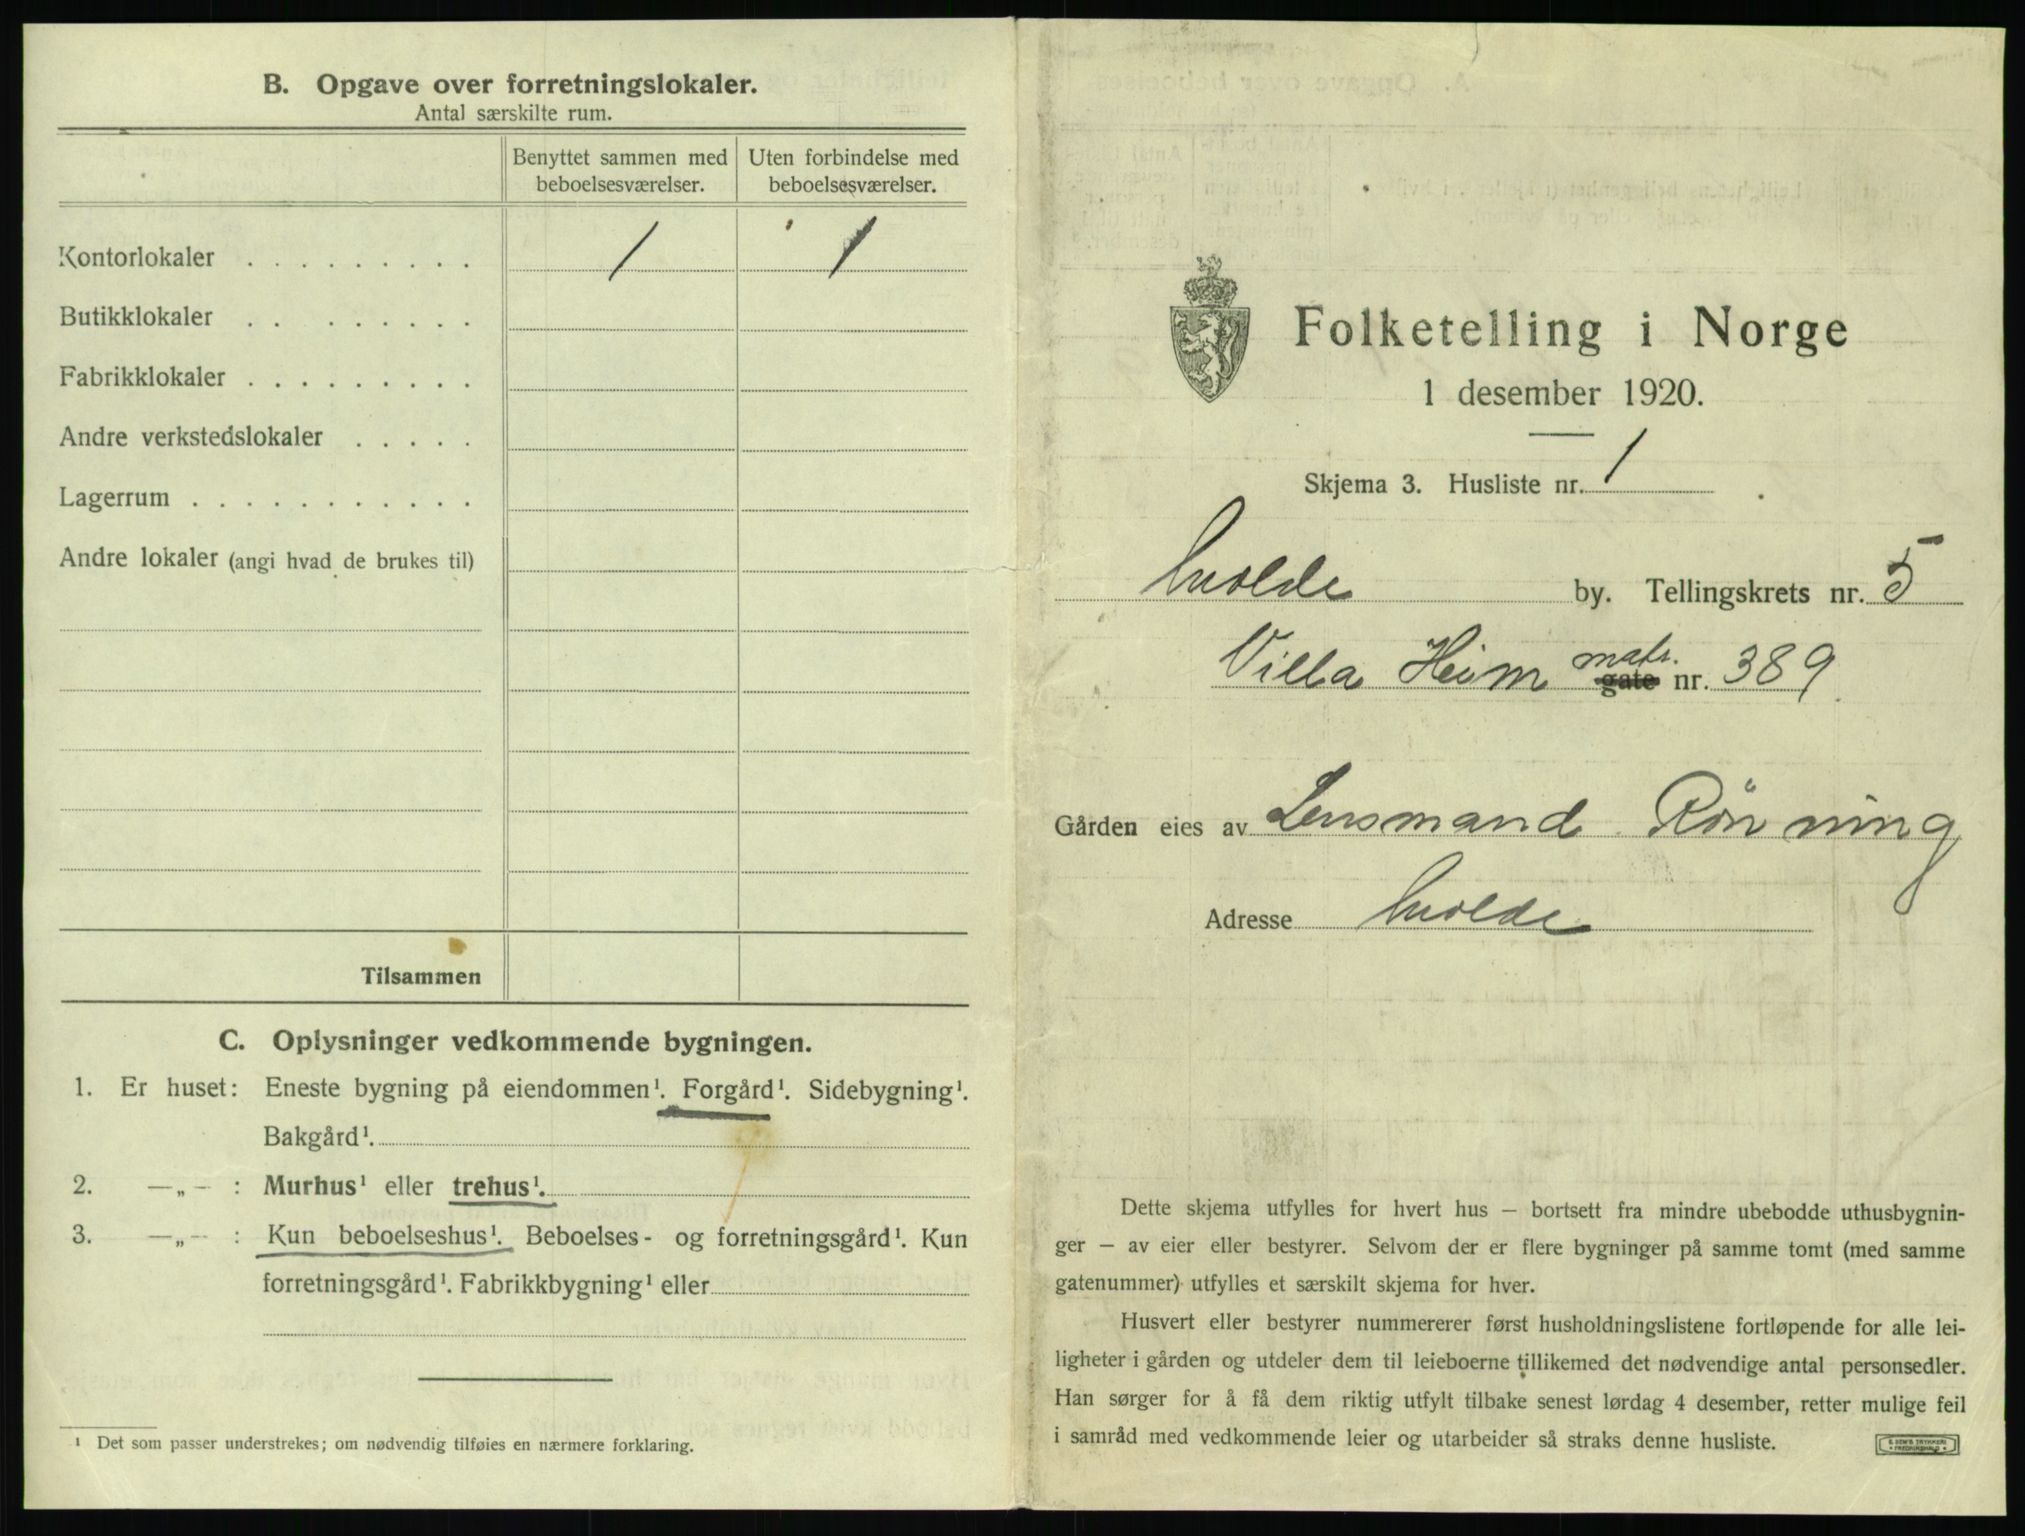 B. Opgave over forretningslokaler.
Antal særskilte rum.
Benyttet sammen med beboelsesværelser.
Uten forbindelse med beboelsesværelser.
Kontorlokaler . . . . . . . . . 1 1
Butikklokaler . . . . . . . .
Fabrikklokaler . . . . . . . . .
Andre verkstedslokaler . . . . .
Lagerrum . . . . . . . . . . .
Andre lokaler (angi hvad de brukes til)
Tilsammen
C. Oplysninger vedkommende bygningen.
1. Er huset: Eneste bygning på eiendommen¹. Forgård¹. Sidebygning¹.
Bakgård¹.
2. —„— : Murhus¹ eller trehus¹.
3. —„— : Kun beboelseshus¹. Beboelses- og forretningsgård¹. Kun
forretningsgård¹. Fabrikkbygning¹ eller
¹ Det som passer understrekes; om nødvendig tilføies en nærmere forklaring.
Folketelling i Norge
1 desember 1920.
Skjema 3. Husliste nr. 1
Molde by. Tellingskrets nr. 5
Villa Heim matr. gate nr. 389
Gården eies av Lensmand Rönning
Adresse Molde
Dette skjema utfylles for hvert hus – bortsett fra mindre ubebodde uthusbygnin-
ger – av eier eller bestyrer. Selvom der er flere bygninger på samme tomt (med samme
gatenummer) utfylles et særskilt skjema for hver.
Husvert eller bestyrer nummererer først husholdningslistene fortløpende for alle lei-
ligheter i gården og utdeler dem til leieboerne tillikemed det nødvendige antal personsedler.
Han sørger for å få dem riktig utfylt tilbake senest lørdag 4 desember, retter mulige feil
i samråd med vedkommende leier og utarbeider så straks denne husliste.